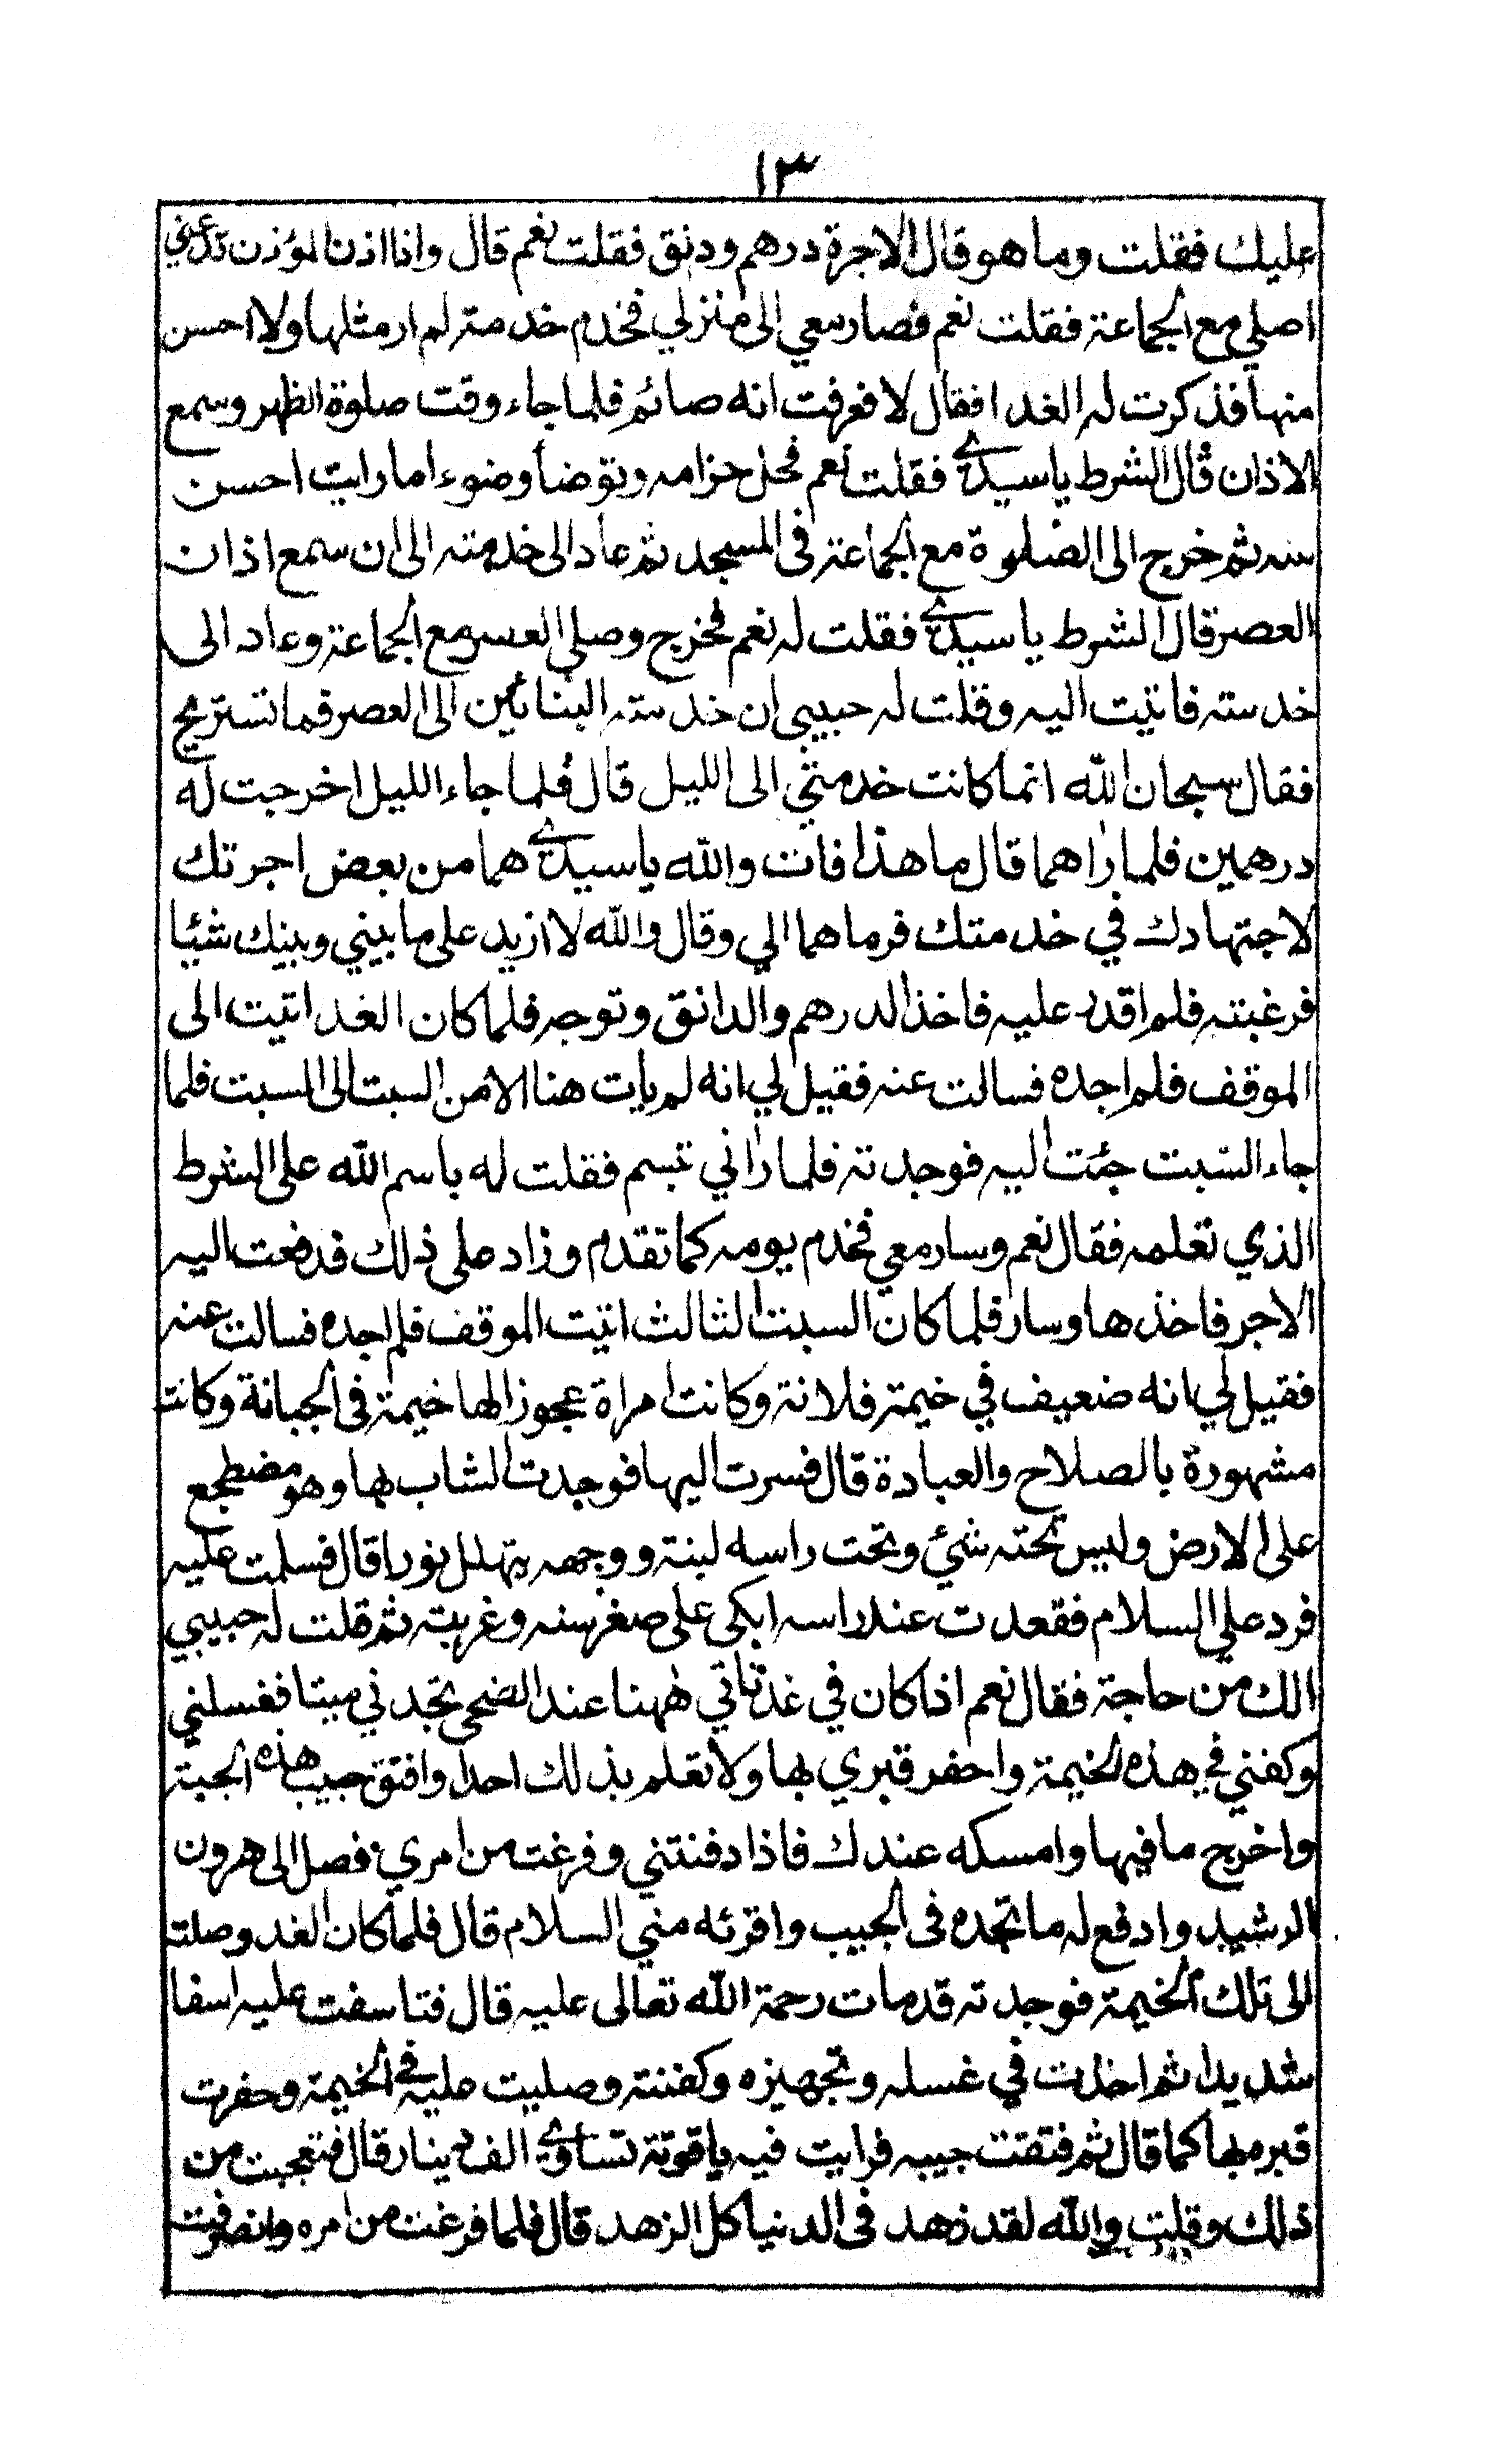 ١٣
عليك فقلت وما هو قال الاجرة درهم ودنق فقلت نعم قال وانا اذن المؤذن تدعني
اصلي مع الجماعة فقلت نعم فصار معي الى منزلي فخدم خدمة لم ار مثلها ولا احسن
منها فذكرت له الغدا فقال لا فعرفت انه صائم فلما جاء وقت صلوة الظهر وسمع
الاذان قال الشرط يا سيدي فقلت نعم فحل حزامه وتوضأ وضوءا ما رايت احسن
منه ثم خرج الى الصلوة مع الجماعة فى المسجد ثم عاد الى خدمته الى ان سمع اذان
العصر قال الشرط يا سيدي فقلت له نعم فخرج وصلي العسر مع الجماعة وعاد الى
خدمته فاتيت اليه وقلت له حبيبى ان خدمته البنائين الى العصر فما تستريح
فقال سبحان الله انما كانت خدمتي الى الليل قال فلما جاء الليل اخرجت له
درهمين فلما راهما قال ما هذا فات والله يا سيدي هما من بعض اجرتك
لاجتهادك في خدمتك فرماهما الي وقال والله لا ازيد على ما بيني وبينك شيئا
فرغبته فلم اقدر عليه فاخذ الدرهم والدانق وتوجه فلما كان الغد اتيت الى
الموقف فلم اجده فسالت عنه فقيل لي انه لم يات هنا الا من السبت الى السبت فلما
جاء السبت جئت اليه فوجدته فلما راني تبسم فقلت له باسم الله على الشرط
الذي تعلمه فقال نعم وسار معي فخدم يومه كما تقدم وزاد على ذلك فدفعت اليه
الاجر فاخذها وسار فلما كان السبت الثالث اتيت الموقف فلم اجده فسالت عنه
فقيل لي انه ضعيف في خيمة فلانة وكانت امراة عجوز الها خيمة فى الجبانة وكانت
مشهورة بالصلاح والعبادة قال فسرت اليها فوجدت الشاب بها وهو مضطجع
على الارض وليس تحته شيئ وتحت راسه لبنة ووجهه يتهلل نورا قال فسلمت عليه
فرد علي السلام فقعدت عند راسه ابكى على صغر سنه وغربته ثم قلت له حبيبي
الك من حاجة فقال نعم اذا كان في غد تاتي ههنا عند الضحى تجدني ميتا فغسلني
وكفني في هذه الخيمة واحفر قبري بها ولا تعلم بذلك احدا وافتق جيب هذه الجبة
واخرج ما فيها وامسكه عندك فاذا دفنتني وفرغت من امري فصل الى هرون
الرشيد وادفع له ما تجده فى الجيب واقرئه مني السلام قال فلما كان الغد وصلت
الى تلك الخيمة فوجدته قد مات رحمة الله تعالى عليه قال فتاسفت عليه اسفا
شديدا ثم اخذت في غسله وتجهيزه وكفنته وصليت عليه في الخيمة وحفرت
قبره بها كما قال ثم فتقت جيبه فرايت فيه ياقوتة تساوي الف دينار قال فتعجبت من
ذلك وقلت والله لقد زهد فى الدنيا كل الزهد قال فلما فرغت من امره وانصرفت